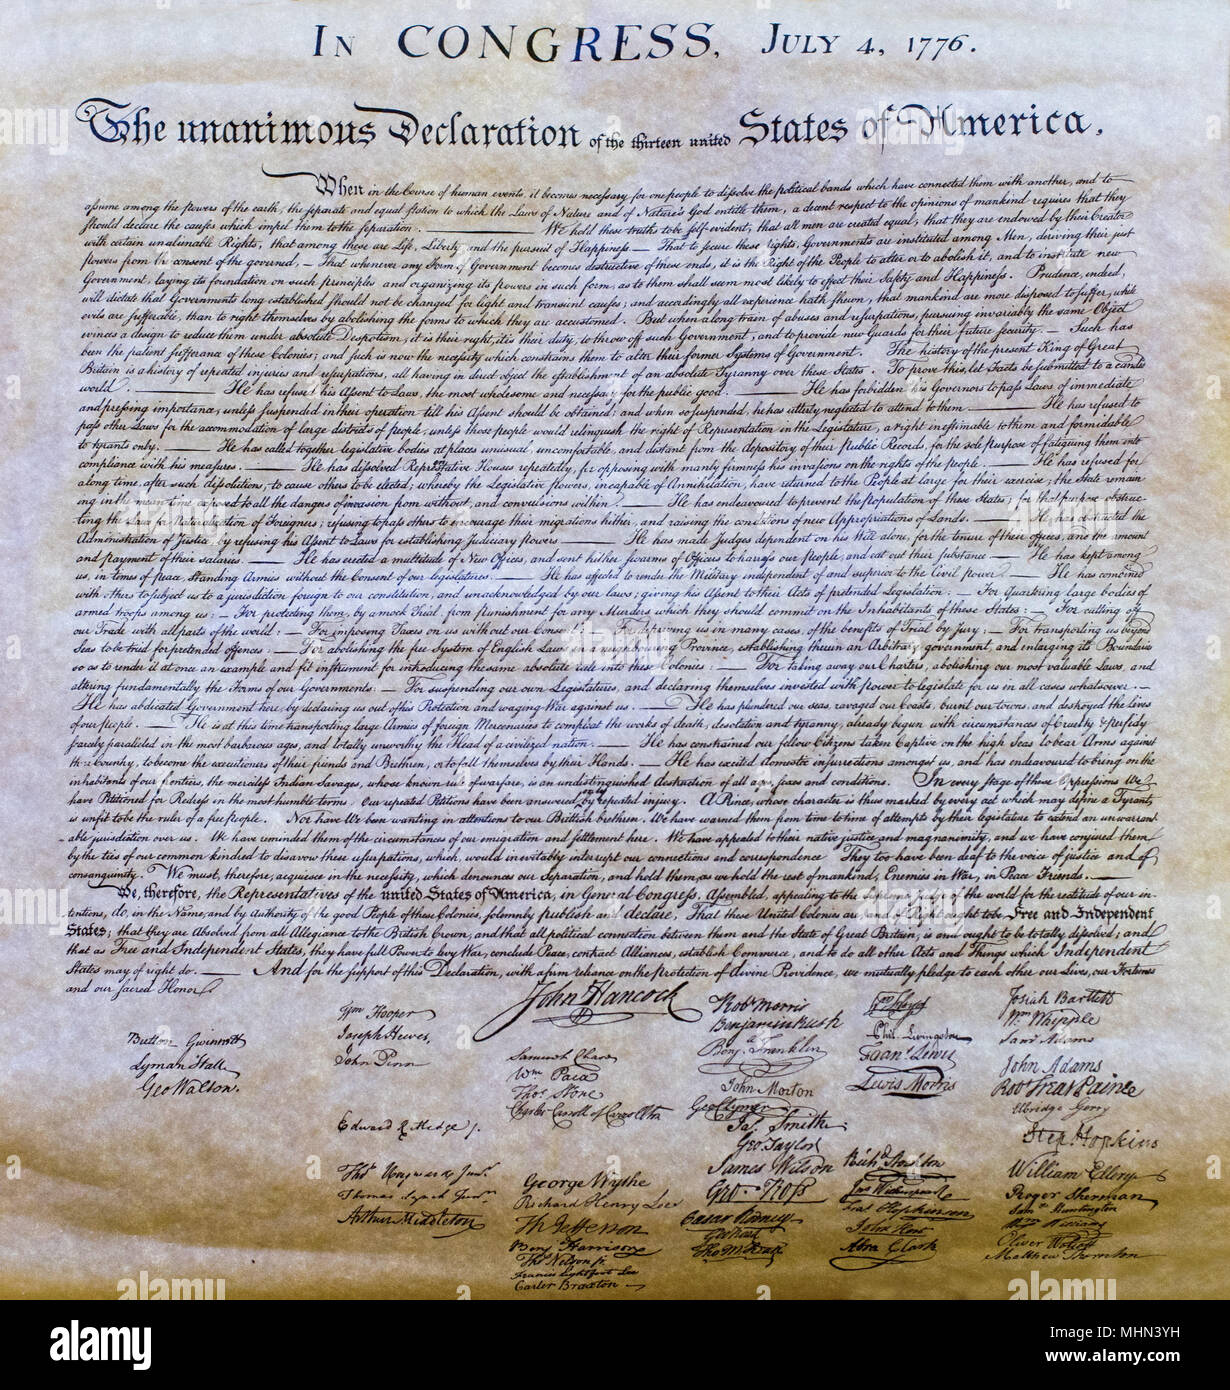 IN CONGRESS, JULY 4, 1776.
The unanimous Declaration of the thirteen united States of America,
When in the Course of human events, it becomes necessary for one people to dissolve the political bands which have connected them with another, and to
assume among the powers of the earth, the separate and equal station to which the Laws of Nature and of Nature's God entitle them, a decent respect to the opinions of mankind requires that they
should declare the causes which impel them to the separation. — We hold these truths to be self-evident, that all men are created equal, that they are endowed by their Creator
with certain unalienable Rights, that among these are Life, Liberty and the pursuit of Happiness — That to secure these rights, Governments are instituted among Men, deriving their just
powers from the consent of the governed, — That whenever any Form of Government becomes destructive of these ends, it is the Right of the People to alter or to abolish it, and to institute new
Government, laying its foundation on such principles and organizing its powers in such form, as to them shall seem most likely to effect their Safety and Happiness. Prudence, indeed,
will dictate that Governments long established should not be changed for light and transient causes; and accordingly all experience hath shewn, that mankind are more disposed to suffer, while
evils are sufferable, than to right themselves by abolishing the forms to which they are accustomed. But when a long train of abuses and usurpations, pursuing invariably the same Object
evinces a design to reduce them under absolute Despotism, it is their right, it is their duty, to throw off such Government, and to provide new Guards for their future security. — Such has
been the patient sufferance of these Colonies; and such is now the necessity which constrains them to alter their former Systems of Government. The history of the present King of Great
Britain is a history of repeated injuries and usurpations, all having in direct object the establishment of an absolute Tyranny over these States. To prove this, let Facts be submitted to a candid
world. — He has refused his Assent to Laws, the most wholesome and necessary for the public good. — He has forbidden his Governors to pass Laws of immediate
and pressing importance, unless suspended in their operation till his Assent should be obtained; and when so suspended, he has utterly neglected to attend to them — He has refused to
pass other Laws for the accommodation of large districts of people, unless those people would relinquish the right of Representation in the Legislature, a right inestimable to them and formidable
to tyrants only. — He has called together legislative bodies at places unusual, uncomfortable, and distant from the depository of their Public Records, for the sole purpose of fatiguing them into
compliance with his measures. — He has dissolved Representative Houses repeatedly, for opposing with manly firmness his invasions on the rights of the people. — He has refused for
a long time, after such dissolutions, to cause others to be elected; whereby the Legislative powers, incapable of Annihilation, have returned to the People at large for their exercise; the State remain
ing in the mean time exposed to all the dangers of invasion from without, and convulsions within. — He has endeavoured to prevent the population of these States; for that purpose obstruc-
ting the Laws for Naturalization of Foreigners; refusing to pass others to encourage their migrations hither, and raising the conditions of new Appropriations of Lands. — He has obstructed the
Administration of Justice, by refusing his Assent to Laws for establishing Judiciary powers — He has made Judges dependent on his Will alone, for the tenure of their offices, and the amount
and payment of their salaries. — He has erected a multitude of New Offices, and sent hither swarms of Officers to harrass our people, and eat out their substance — He has kept among
us, in times of peace, Standing Armies without the Consent of our legislatures. — He has affected to render the Military independent of and superior to the Civil power — He has combined
with others to subject us to a jurisdiction foreign to our constitution, and unacknowledged by our laws; giving his Assent to their Acts of pretended Legislation: — For Quartering large bodies of
armed troops among us: — For protecting them, by a mock Trial, from punishment for any Murders which they should commit on the Inhabitants of these States: — For cutting off
our Trade with all parts of the world: — For imposing Taxes on us without our Consent: — For depriving us in many cases, of the benefits of Trial by Jury; — For transporting us beyond
Seas to be tried for pretended offences: — For abolishing the free System of English Laws in a neighbouring Province, establishing therein an Arbitrary government, and enlarging its Boundaries
so as to render it at once an example and fit instrument for introducing the same absolute rule into these Colonies: — For taking away our Charters, abolishing our most valuable Laws, and
altering fundamentally the Forms of our Governments: — For suspending our own Legislatures, and declaring themselves invested with power to legislate for us in all cases whatsoever. —
He has abdicated Government here, by declaring us out of his Protection and waging War against us. — He has plundered our seas, ravaged our Coasts, burnt our towns, and destroyed the lives
of our people. — He is at this time transporting large Armies of foreign Mercenaries to compleat the works of death, desolation and tyranny, already begun with circumstances of Cruelty & perfidy
scarcely paralleled in the most barbarous ages, and totally unworthy the Head of a civilized nation. — He has constrained our fellow Citizens taken Captive on the high Seas to bear Arms against
their Country, to become the executioners of their friends and Brethren, or to fall themselves by their Hands. — He has excited domestic insurrections amongst us, and has endeavoured to bring on the
inhabitants of our frontiers, the merciless Indian Savages, whose known rule of warfare, is an undistinguished destruction of all ages, sexes and conditions. In every stage of these Oppressions We
have Petitioned for Redress in the most humble terms. Our repeated Petitions have been answered only by repeated injury. A Prince, whose character is thus marked by every act which may define a Tyrant,
is unfit to be the ruler of a free people. Nor have We been wanting in attentions to our Brittish brethren. We have warned them from time to time of attempts by their legislature to extend an unwarrant
able jurisdiction over us. We have reminded them of the circumstances of our emigration and settlement here. We have appealed to their native justice and magnanimity, and we have conjured them
by the ties of our common kindred to disavow these usurpations, which, would inevitably interrupt our connections and correspondence They too have been deaf to the voice of justice and of
consanguinity. We must, therefore, acquiesce in the necessity, which denounces our Separation, and hold them, as we hold the rest of mankind, Enemies in War, in Peace Friends. —
We, therefore, the Representatives of the united States of America, in General Congress, Assembled, appealing to the Supreme Judge of the world for the rectitude of our in-
tentions, do, in the Name, and by Authority of the good People of these Colonies, solemnly publish and declare, That these United Colonies are, and of Right ought to be Free and Independent
States; that they are Absolved from all Allegiance to the British Crown, and that all political connection between them and the State of Great Britain, is and ought to be totally dissolved; and
that as Free and Independent States, they have full Power to levy War, conclude Peace, contract Alliances, establish Commerce, and to do all other Acts and Things which Independent
States may of right do. — And for the support of this Declaration, with a firm reliance on the protection of divine Providence, we mutually pledge to each other our Lives, our Fortunes
and our sacred Honor.
Button Gwinnett
Lyman Hall
Geo Walton.
Wm Hooper
Joseph Hewes,
John Penn
Edward Rutledge /.
Thos Heyward Junr.
Thomas Lynch Junr.
Arthur Middleton
John Hancock
Samuel Chase
Wm. Paca
Thos. Stone
Charles Carroll of Carrollton
George Wythe
Richard Henry Lee
Th Jefferson
Benj Harrison
Thos Nelson jr.
Francis Lightfoot Lee
Carter Braxton
Robt Morris
Benjamin Rush
Benj. Franklin
John Morton
Geo Clymer
Jas. Smith
Geo. Taylor
James Wilson
Geo. Ross
Caesar Rodney
Geo Read
Tho M:Kean
Wm Floyd
Phil. Livingston
Frans. Lewis
Lewis Morris
Richd. Stockton
Jno Witherspoon
Fras. Hopkinson
John Hart
Abra Clark
Josiah Bartlett
Wm. Whipple
Saml Adams
John Adams
Robt Treat Paine
Elbridge Gerry
Step. Hopkins
William Ellery
Roger Sherman
Saml Huntington
Wm Williams
Oliver Wolcott
Matthew Thornton
alamy
Image ID: MHN3YH
www.alamy.com